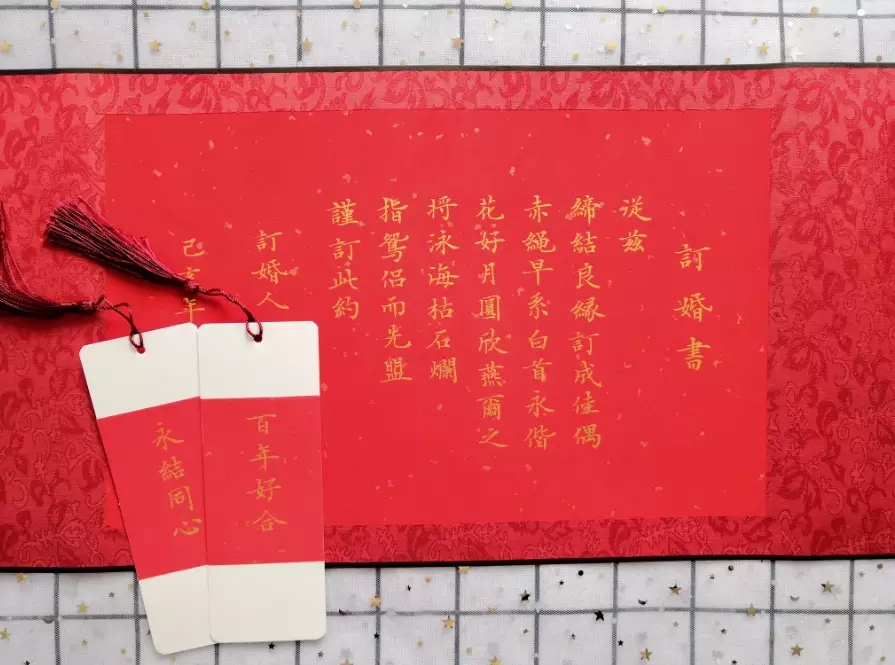 訂婚書
從茲
締結良緣訂成佳偶
赤繩早系白首永偕
花好月圓欣燕爾之
将泳海枯石爛
指鴛侣而光盟
謹訂此約
訂婚人
己亥年
百年好合
永結同心